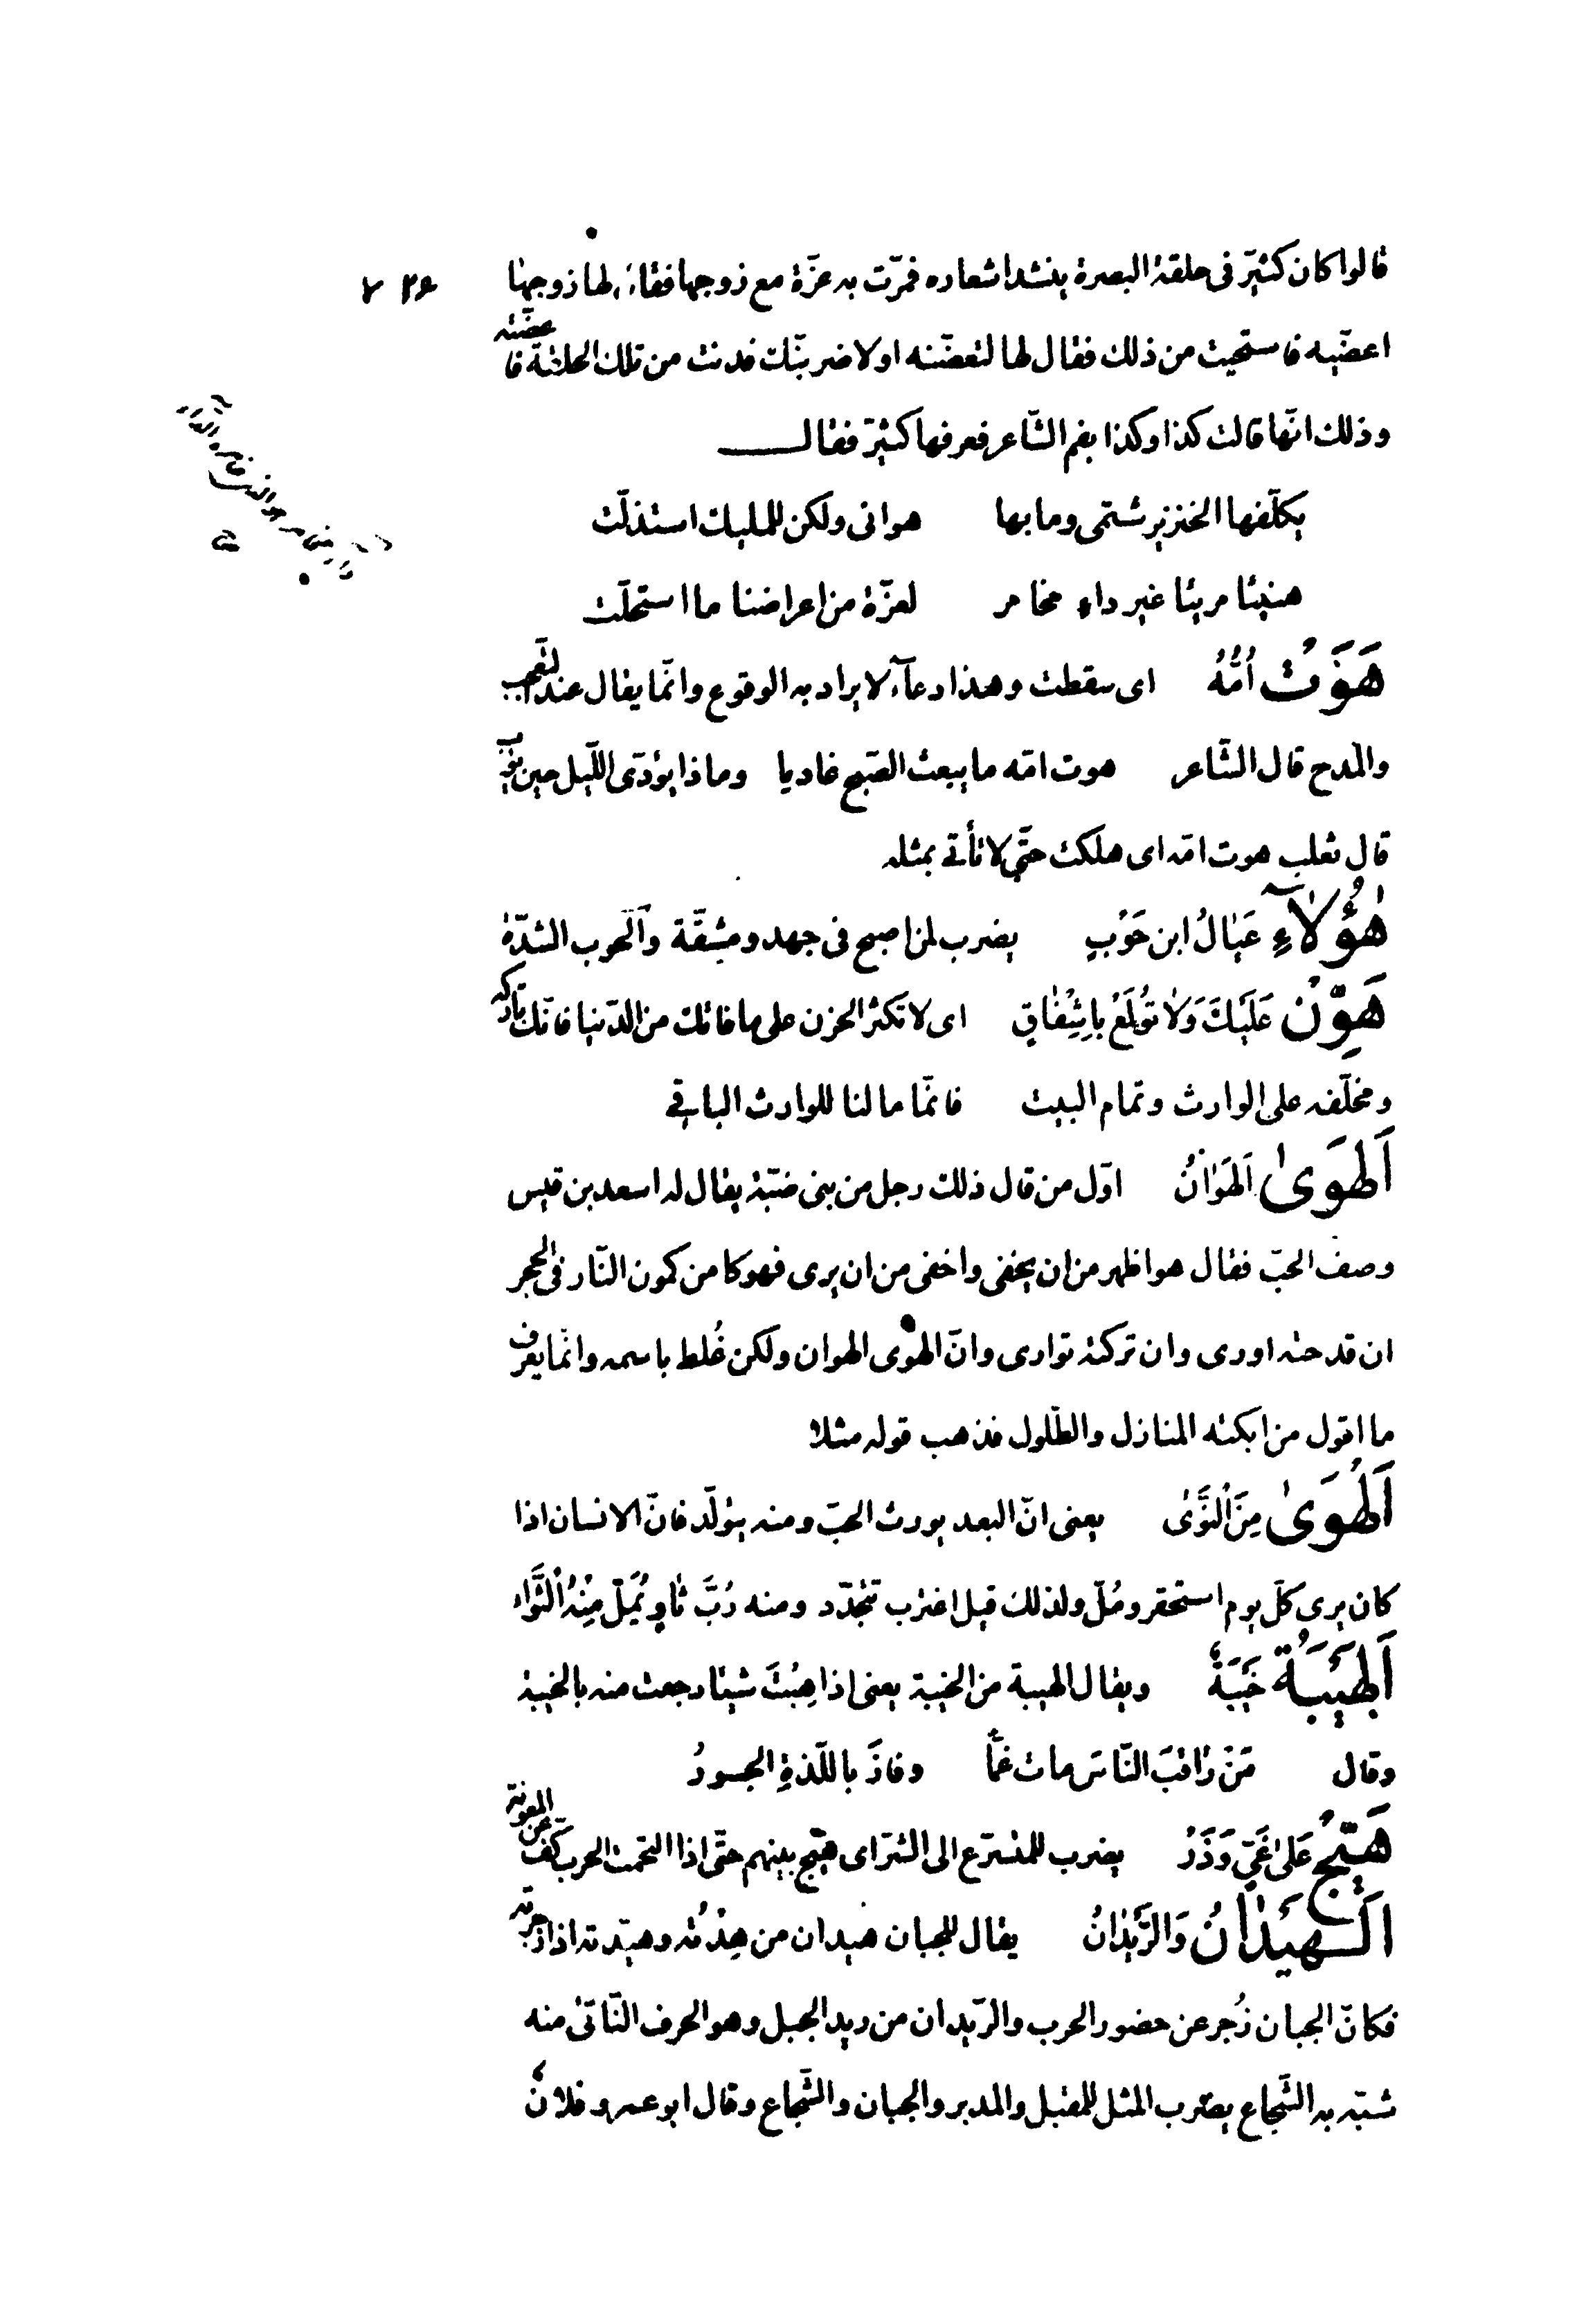 قالوا كان كثيّر فى حلقة البصرة ينشد اشعاره فمرّت به عزّة مع زوجها فقال لها زوجها
اعضّيه فاستحيت من ذلك فقال لها لتعضّنه اولاضربنّك فدنت من تلك الحلقة فاعضّته
وذلك انّها قالت كذا وكذا بفم الشّاعر فعرفها كثيّر فقال
يكلّفها الخنزير شتمى وما بها هوانى ولكن للمليك استذلّت
هنيئا مريئا غير داء مخامر لعزّة من اعراضنا ما استحلّت
هَوَتْ اُمُّهُ اى سقطت وهذا دعآء لا يراد به الوقوع وانّما يقال عند التّعجب
والمدح قال الشّاعر هوت امّه ما يبعث الصّبح غاديا وماذا يؤدّى اللّيل حين يؤب
قال ثعلب هوت امّه اى هلكت حتّى لا تأتى بمثله
هٰؤُلآءِ عَيٰالُ ابن حَوْبٍ يضرب لمن اصبح فى جهد ومشقّة والحوب الشدّة
هَوِّنْ عَلَيْكَ وَلاٰ تُولَعْ بِاِشْفٰاقٍ اى لا تكثر الحزن على ما فاتك من الدّنيا فانّك تاركه
ومخلّفه على الوارث وتمام البيت فانّما مالنا للوارث الباقى
اَلْهَوىٰ اَلْهَوٰانُ اوّل من قال ذلك رجل من بنى ضبّة يقال له اسعد بن قيس
وصف الحبّ فقال هو اظهر من ان يخفى واخفى من ان يرى فهو كامن كمون النّار فى الحجر
ان قدحته اورى وان تركته توارى وانّ الهوى الهوان ولكن غُلط باسمه وانّما يعرف
ما اقول من ابكته المنازل والطّلول فذهب قوله مثلا
اَلْهَوىٰ مِنَ النَّوىٰ يعنى انّ البعد يورث الحبّ ومنه يتولّد فانّ الانسان اذا
كان يرى كلّ يوم استحقر ومُلّ ولذلك قيل اغترب تتجدّد ومنه رُبَّ ثٰاوٍ يُمَلّ مِنْهُ الثَّوٰاء
اَلْهَيْبَةُ خَيْبَةٌ ويقال الهيبة من الخيبة يعنى اذا هِبْتَ شيئا رجعت منه بالخيبة
وقال مَنْ رٰاقَبَ النّاسَ مات غمّا وفازَ باللّذةِ الجسورُ
هَيِّجْ عَلىٰ غَيٍّ وَذَرْ يضرب للمتسرّع الى الشرّ اى هيّج بينهم حتّى اذا التحمت الحرب كفّ عن المعونة
اَلْهَيْذٰانُ وَالرَّيْدٰانُ يقال للجبان هيدان من هِدْته وهيّدته اذا زجرته
فكانّ الجبان زُجر عن حضور الحرب والرّيدان من ريد الجبل وهو الحرف النّاتى منه
شبّه به الشّجاع يضرب المثل للمقبل والمدبر والجبان والشّجاع وقال ابو عمرو فلانٌ